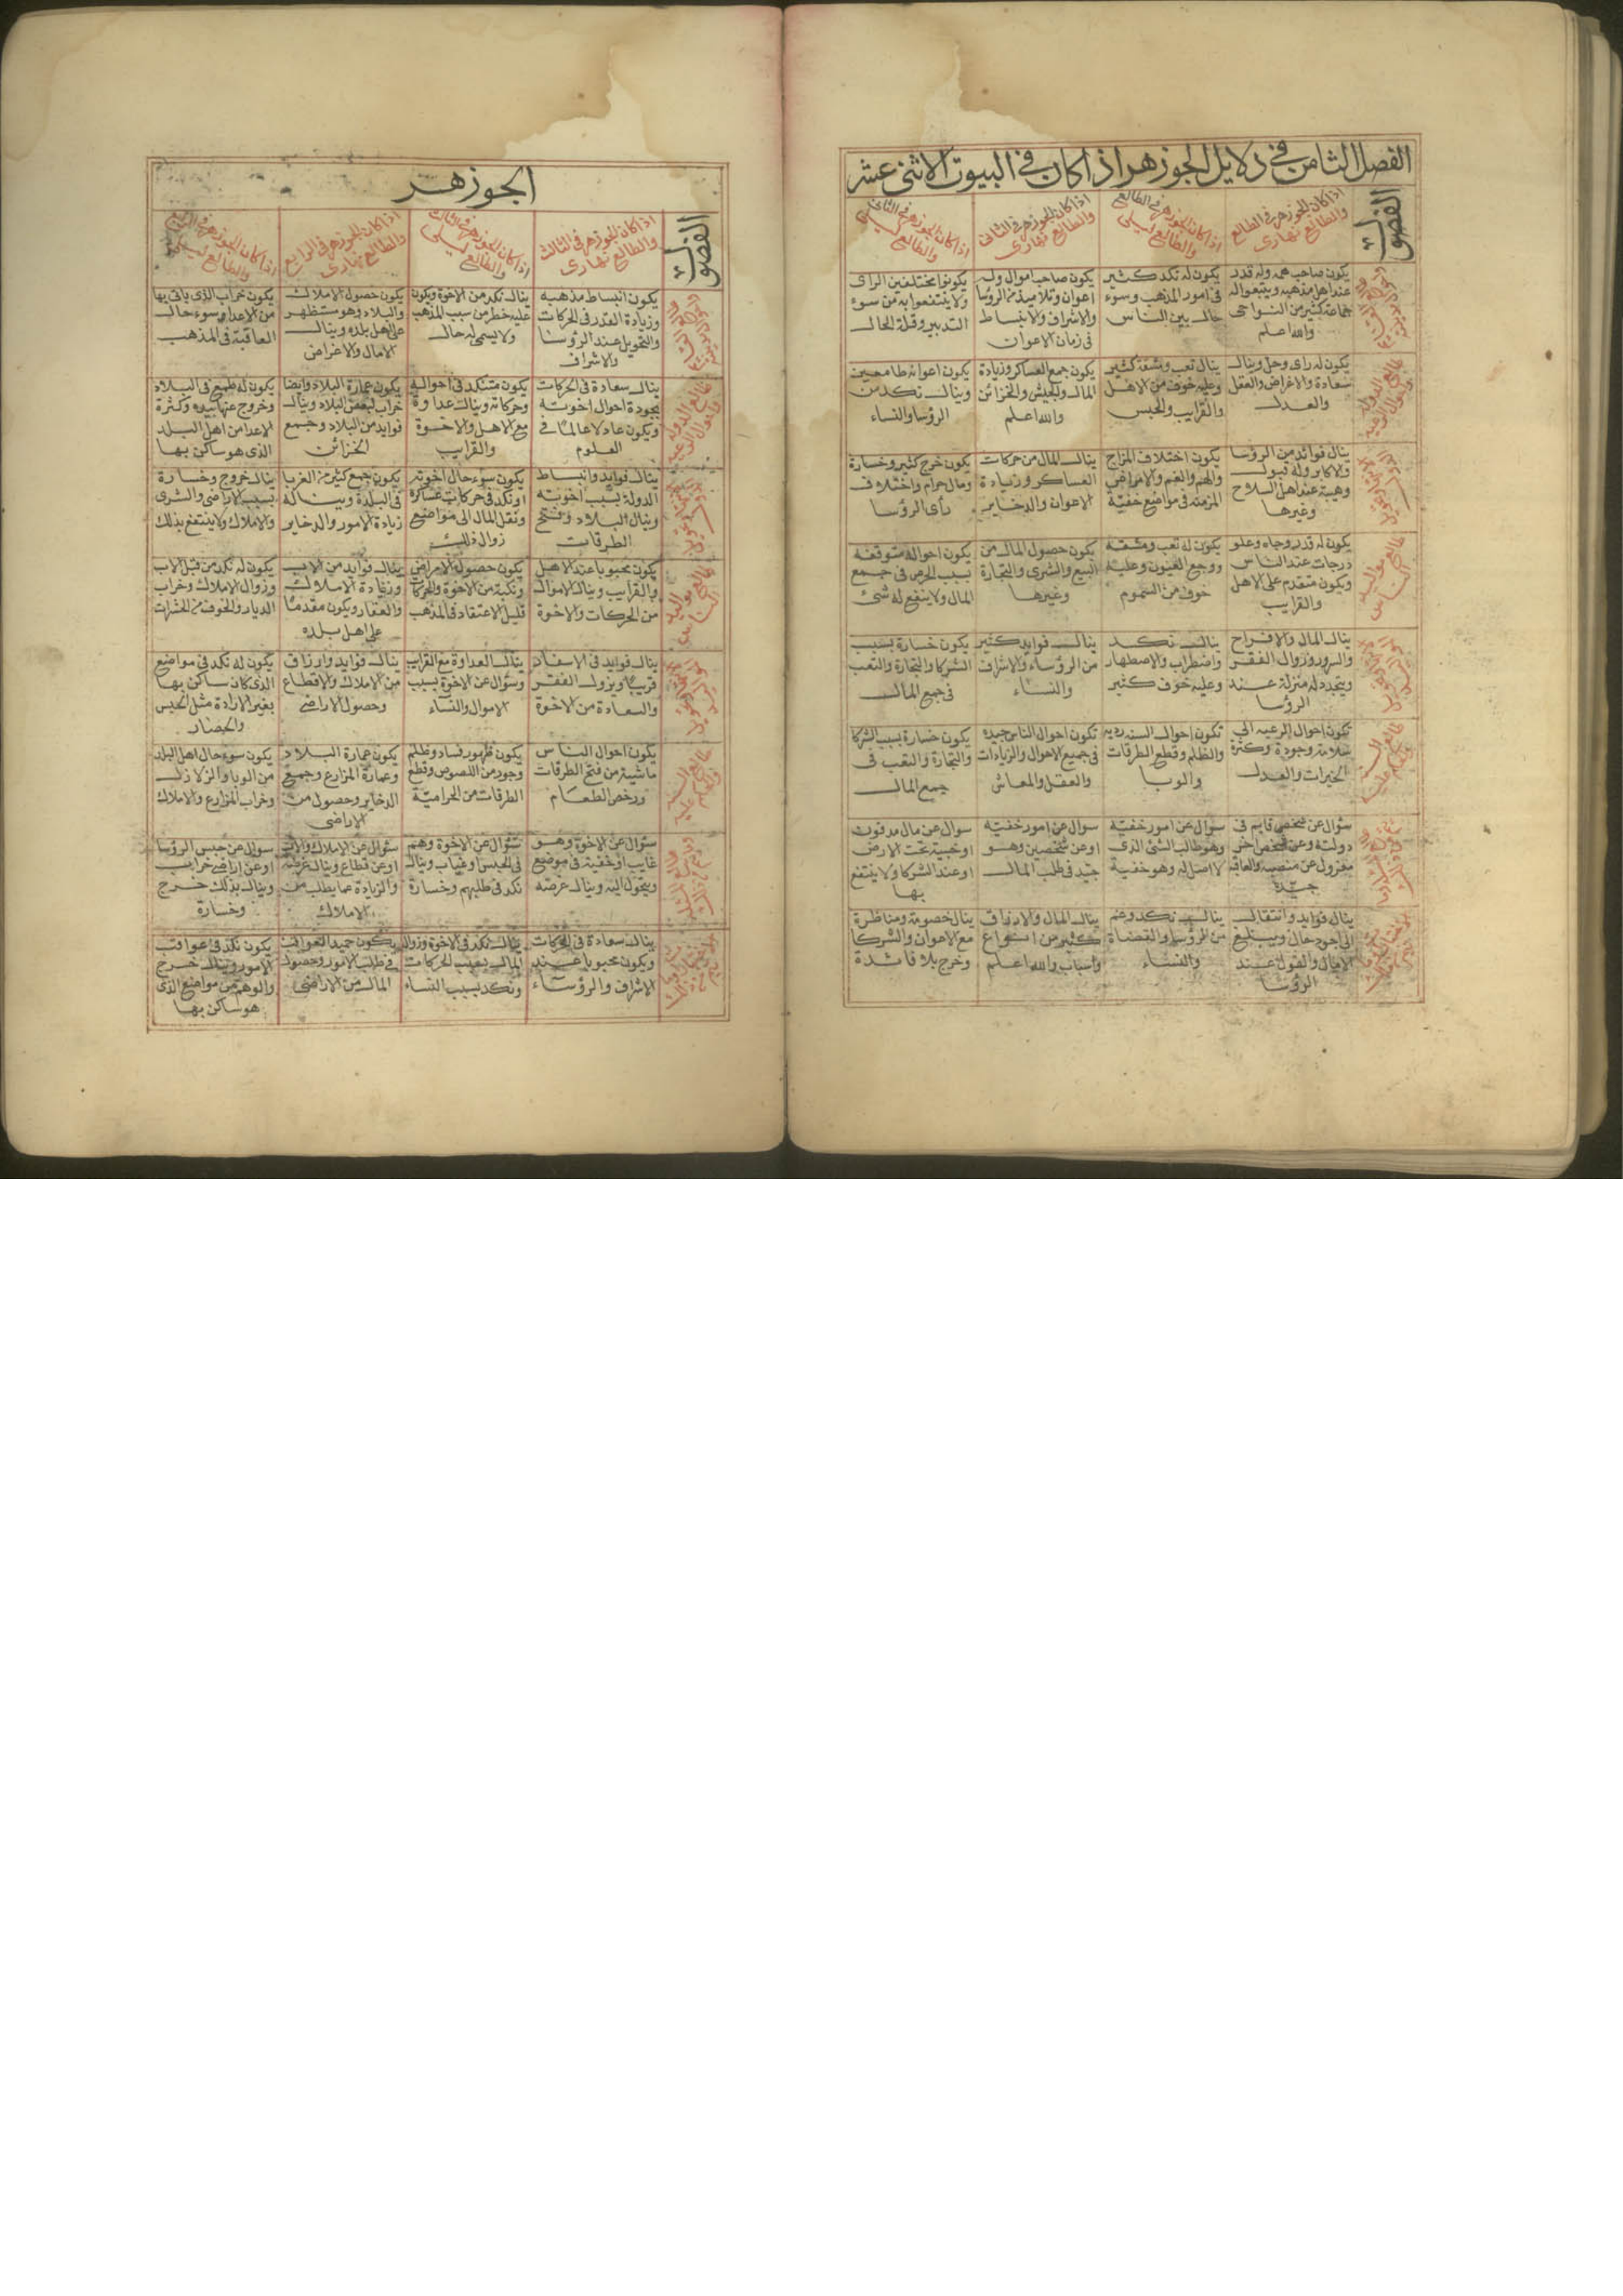 الفصل الثامن في دلايل الجوزهر اذا كان في البيوت الاثنى عشر
الفصول
اذا كان الجوزهر في الطالع
والطالع نهاري
اذا كان الجوزهر في الطالع
والطالع ليلي
اذا كان الجوزهر في الثاني
والطالع نهاري
اذا كان الجوزهر في الثاني
والطالع ليلي
يكون صاحب همه وله قدر
عند اهل مذهبه ويتبعوا له
جماعة كثير من النواحى
والله اعلم
يكون له نكد كثير
في امور المذهب وسوء
حال بين الناس
يكون صاحب اموال وله
اعوان وتلاميذ من الرؤسا
والاشراف والانبساط
في زمان الاعوان
يكونوا مختلفين الراى
ولا ينتفعوا به من سوء
التدبير وقلة الحال
يكون له راى وحل وينال
سعادة والاغراض والعقل
والعدل
ينال تعب ومشقة كثير
وعليه خوف من الاهل
والقرايب والحبس
يكون جمع العساكر وزيادة
المال والجيش والخزائن
والله اعلم
يكون اعوانه طامعين
وينال نكد من
الرؤسا والنساء
ينال فوائد من الرؤسا
والاكابر وله قبول
وهيبة عند اهل السلاح
وغيرها
يكون اختلاف المزاج
والهم والغم والامراض
المزمنه في مواضع خفية
ينال المال من حركات
العساكر وزيادة
الاعوان والدخاير
يكون خرج كثير وخسارة
ومال حرام واختلاف
رأى الرؤسا
يكون له قدر وجاه وعلو
درجات عند الناس
ويكون متقدم على الاهل
والقرايب
يكون له تعب ومشقه
ووجع العيون وعليه
خوف من السموم
يكون حصول المال من
البيع والشرى والتجارة
وغيرها
يكون احواله متوقفه
بسبب الحرص في جمع
المال ولا ينفع له شئ
ينال المال والافراح
والسرور وزوال الفقر
ويتجدد له منزلة عند
الرؤسا
ينال نكد
واضطراب والاصطهار
وعليه خوف كثير
ينال فوايد كثير
من الرؤساء والاشراف
والنساء
يكون خسارة بسبب
الشركا والتجارة والتعب
في جميع المال
تكون احوال الرعيه الى
سلامة وجودة وكثرة
الخيرات والعدل
تكون احوال السنه رديه
والظلم وقطع الطرقات
والوبا
تكون احوال الناس جيده
في جميع الاحوال والزيادات
والعقل والمعاش
يكون خسارة بسبب الشركا
والتجارة والتعب في
جميع المال
سؤال عن شخص قايم في
دولته وعن شخص اخر
معزول عن منصبه والعاقبه
جيدة
سؤال عن امور خفية
وهو طالب الشئ الذى
لا اصل له وهو خفية
سوال عن امور خفيه
او عن شخصين وهو
جيد في طلب المال
سوال عن مال مدفون
او خبية تحت الارض
او عند الشركا ولا ينتفع
بها
ينال فوايد وانتقال
الى اجود حال ويبلغ
الامال والقول عند
الرؤسا
ينال نكد وغم
من الرؤسا والقضاة
والنساء
ينال المال والارزاق
كثير من انواع
واسباب والله اعلم
ينال خصومة ومناظرة
مع الاعوان والشركا
وخرج بلا فائدة
الجوزهر
الفصول
اذا كان الجوزهر في الثالث
والطالع نهارى
اذا كان الجوزهر في الثالث
والطالع ليلي
اذا كان الجوزهر في الرابع
والطالع نهارى
اذا كان الجوزهر في الرابع
والطالع ليلي
يكون انبساط مذهبه
وزيادة القدر في الحركات
والتحويل عند الرؤسا
والاشراف
ينال نكد من الاخوة ويكون
عليه خطر من سبب المذهب
ولا يسمى له حال
يكون حصول الاملاك
والبلاد وهو مستظهر
على اهل بلده وينال
الامال والاغراض
يكون خراب الذى ياتى بها
من الاعدا وسوء حال
العاقبة في المذهب
ينال سعادة في الحركات
بجودة احوال اخوته
ويكون عادلا عالما في
العلوم
يكون متنكد في احواله
وحركاته وينال عداوة
مع الاهل والاخوة
والقرايب
يكون عمارة البلاد وايضا
خراب لبعض البلاد وينال
فوايد من البلاد وجمع
الخزائن
يكون له طمع في البلاد
وخروج عنها بيده وكثرة
الاعدا من اهل البلد
الذى هو ساكن بها
ينال فوايد وانبساط
الدولة بسبب اخوته
وينال البلاد وفتح
الطرقات
يكون سوء حال اخوته
او نكد في حركات عساكره
ونقل المال الى مواضع
زوال ذلك
يكون جمع كثير من الغربا
في البلدة وينال
زيادة الامور والدخاير
ينال خروج وخسارة
بسبب الاراضي والشرى
والاملاك ولا ينتفع بذلك
يكون محبوبا عند الاهل
والقرايب وينال الاموال
من الحركات والاخوة
يكون حصول الامراض
ونكبة من الاخوة والحركات
قليل الاعتقاد في المذهب
ينال فوايد من الاب
وزيادة الاملاك
والعقار ويكون مقدما
على اهل بلده
يكون له نكد من قبل الاب
وزوال الاملاك وخراب
الديار والخوف من الحشرات
ينال فوايد في الاسفار
قريبا ويزول الفقر
والسعادة من الاخوة
ينال العداوة مع القرايب
وسؤال عن الاخوة بسبب
الاموال والنساء
ينال فوايد وارزاق
من الاملاك والاقطاع
وحصول الاراضي
يكون له نكد في مواضع
الذى كان ساكن بها
بغير الارادة مثل الحبس
والحصار
يكون احوال الناس
ماشية من فتح الطرقات
ورخص الطعام
يكون ظهور فساد وظلم
وجود من اللصوص وقطع
الطرقات من الحرامية
يكون عمارة البلاد
وعمارة المزارع وجميع
الدخاير وحصول من
الاراضى
يكون سوء حال اهل البلد
من الوبا والزلازل
وخراب المزارع والاملاك
سؤال عن الاخوة وهو
غايب او خفية في موضع
ويتحول اليه وينال غرضه
سؤال عن الاخوة وهم
في الحبس او غياب وينال
نكد في طلبهم وخسارة
سؤال عن الاملاك والاب
او عن قطاع وينال غرضه
والزيادة مما يطلب من
الاملاك
سوال عن حبس الرؤسا
او عن اراضي خراب
وينال بذلك خرج
وخسارة
ينال سعادة في الحركات
ويكون محبوبا عند
الاشراف والرؤساء
ينال نكد في الاخوة وزوال
المال بسبب الحركات
ونكد بسبب النساء
يكون حميد العواقب
في طلب الامور وحصول
المال من الاراضى
يكون نكد في عواقب
الامور وينال خرج
والوهم من مواضع الذى
هو ساكن بها